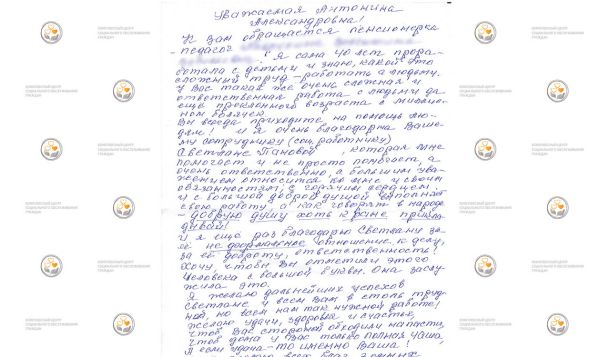 Уважаемая Антонина
Александровна!
К Вам обращается пенсионерка
- педагог
Я сама 40 лет прора-
ботала с детьми и знаю, какой это
сложный труд - работать с людьми.
У Вас также же очень сложная и
ответственная работа с людьми да
ещё преклонного возраста с миллио-
ном болячек.
Вы всегда приходите на помощь лю-
дям! и я очень благодарна Ваше-
му сотруднику (соц. работнику)
Светлане Пановой, которая мне
помогает и не просто помогает, а
очень ответственно, с большим ува-
жением относится ко мне и своим
обязанностям, с горячим сердцем
и с большой добротой выполняет
свою работу, а как говорят в народе
- добрую душу хоть к ране прикла-
дывай!
И я ещё раз благодарю Светлану за
её не формальное отношение к делу,
за её доброту, ответственность!
Хочу, чтобы Вы отметили этого
Человека с большой буквы. Она заслу-
жила это.
Я желаю дальнейших успехов
Светлане и всем Вам в столь труд-
ной, но всем нам так нужной работе!
Желаю удачи, здоровья и счастья,
чтоб Вас стороной обходили напасти,
чтоб дома у Вас только полная чаша
А если удача - то именно Ваша!
всех благ
КОМПЛЕКСНЫЙ ЦЕНТР
СОЦИАЛЬНОГО ОБСЛУЖИВАНИЯ
ГРАЖДАН